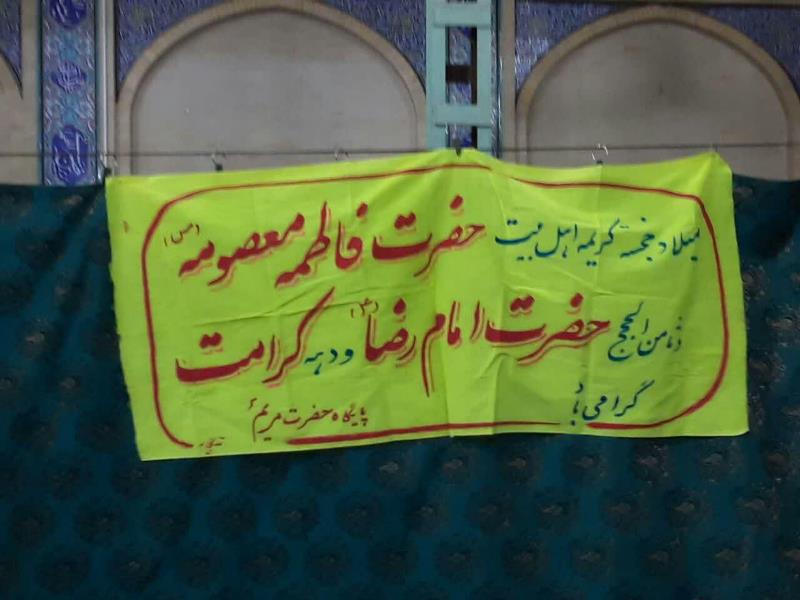 میلاد خجسته کریمه اهل بیت حضرت فاطمه معصومه (س)
ضامن الحجج حضرت امام رضا (ع) و دهه کرامت
گرامی باد
پایگاه حضرت مریم ع